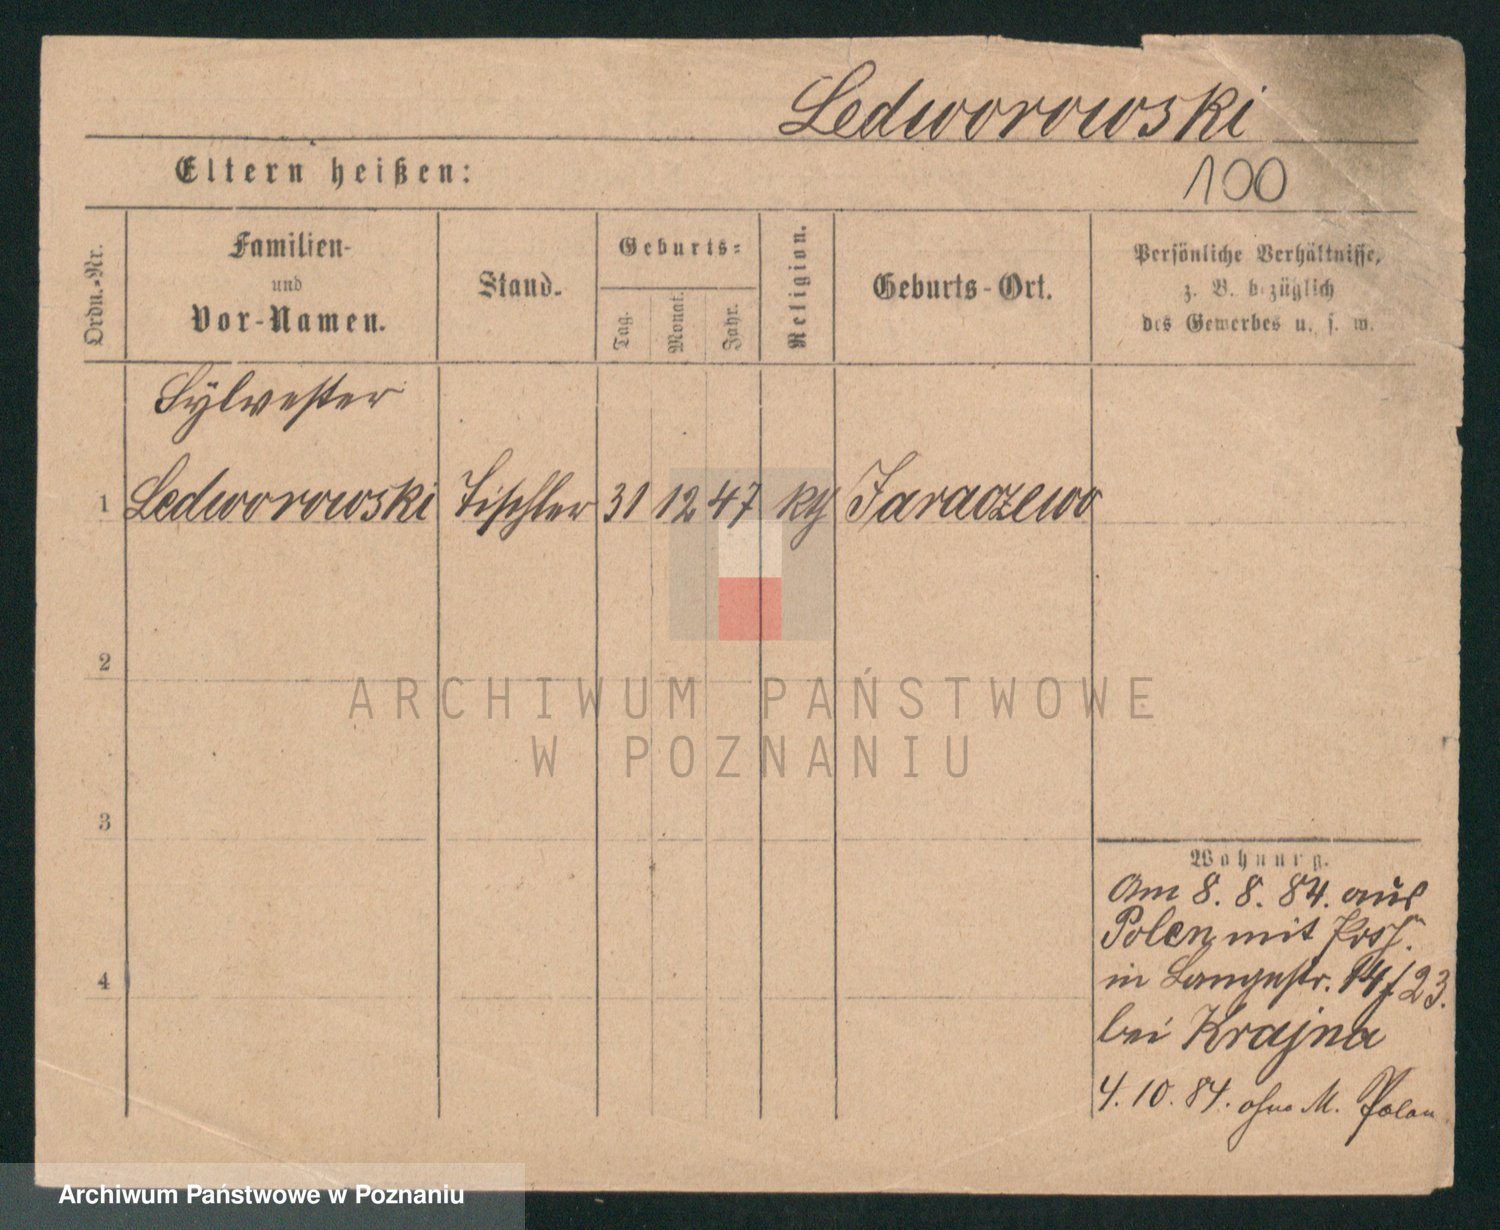 Ledworowski
Eltern heißen:
100
Ordn.-Nr.
Familien-
und
Vor-Namen.
Stand.
Geburts-
Tag.
Monat.
Jahr.
Religion.
Geburts-Ort.
Persönliche Verhältnisse,
z. B. bezüglich
des Gewerbes u. s. w.
Sylvester
1 Ledworowski Tischler 31 12 47 kth Jaraczewo
2
3
4
Wohnung.
Am 8. 8. 84. aus
Polen mit
in Langestr. 14/23.
bei Krajna
4. 10. 84. ohne M. Polen
ARCHIWUM PAŃSTWOWE
W POZNANIU
Archiwum Państwowe w Poznaniu